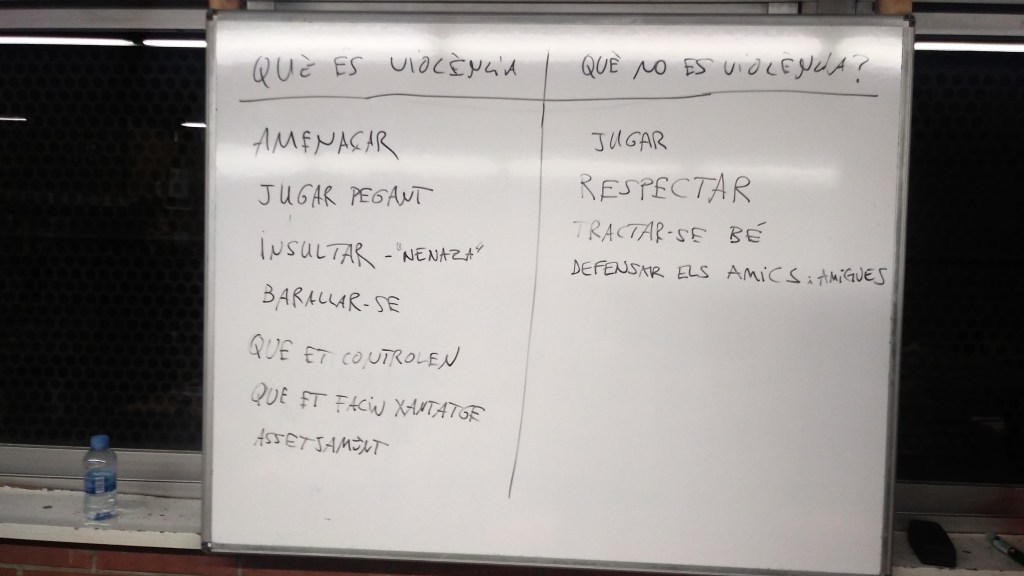 QUÈ ES VIOLÈNCIA
AMENAÇAR
JUGAR PEGANT
INSULTAR - "NENAZA"
BARALLAR-SE
QUE ET CONTROLEN
QUE ET FACIN XANTATGE
ASSETJAMENT
QUÈ NO ES VIOLÈNCIA?
JUGAR
RESPECTAR
TRACTAR-SE BÉ
DEFENSAR ELS AMICS i AMIGUES